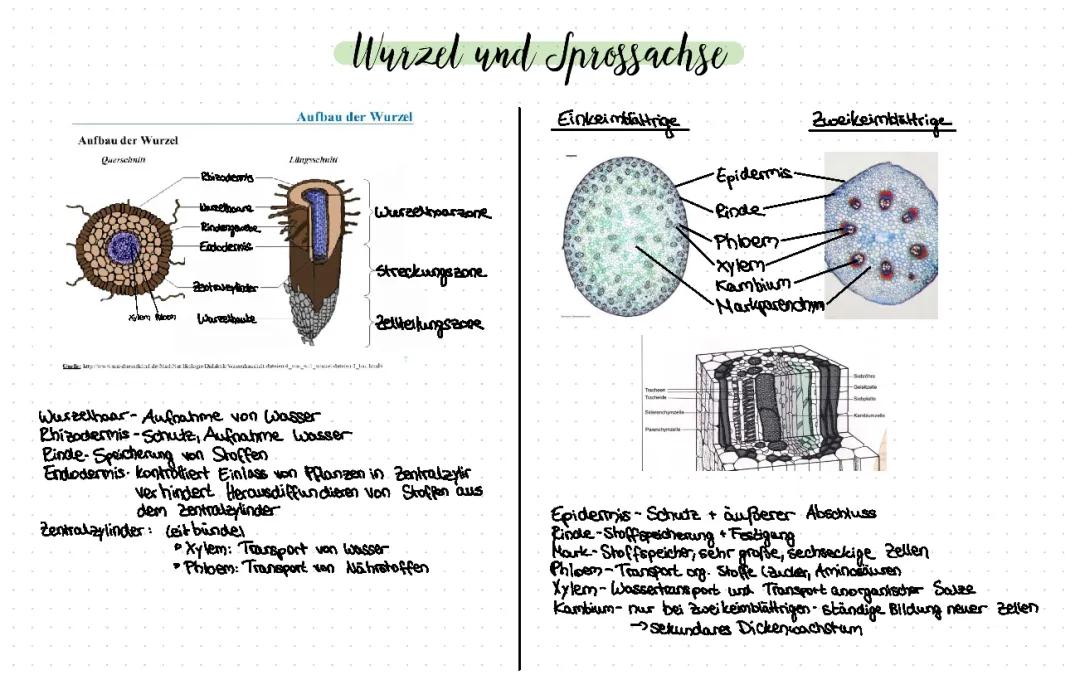 Wurzel und Sprossachse
Aufbau der Wurzel
Aufbau der Wurzel
Querschnitt
Längsschnitt
Rhizodermis
Wurzelhaare
Rindengewebe
Endodermis
Zentralzylinder
Xylem Phloem
Wurzelhaube
Wurzelhaarzone
Streckungszone
Zellteilungszone
Quelle:
Wurzelhaar - Aufnahme von Wasser
Rhizodermis - Schutz, Aufnahme Wasser
Rinde - Speicherung von Stoffen
Endodermis - kontrolliert Einlass von Pflanzen in Zentralzylir
verhindert Herausdiffundieren von Stoffen aus
dem Zentralzylinder
Zentralzylinder: Leitbündel
• Xylem: Transport von Wasser
• Phloem: Transport von Nährstoffen
Einkeimblättrige
Zweikeimblättrige
Epidermis
Rinde
Phloem
Xylem
Kambium
Markparenchym
Tracheen
Tracheide
Sklerenchymzelle
Parenchymzelle
Siebröhre
Geleitzelle
Siebplatte
Kambiumzelle
Epidermis - Schutz + äußerer Abschluss
Rinde - Stoffspeicherung + Festigung
Mark - Stoffspeicher, sehr große, sechseckige Zellen
Phloem - Transport org. Stoffe (Zucker, Aminosäuren
Xylem - Wassertransport und Transport anorganischer Salze
Kambium - nur bei zweikeimblättrigen - ständige Bildung neuer Zellen
→ sekundares Dickenwachstum